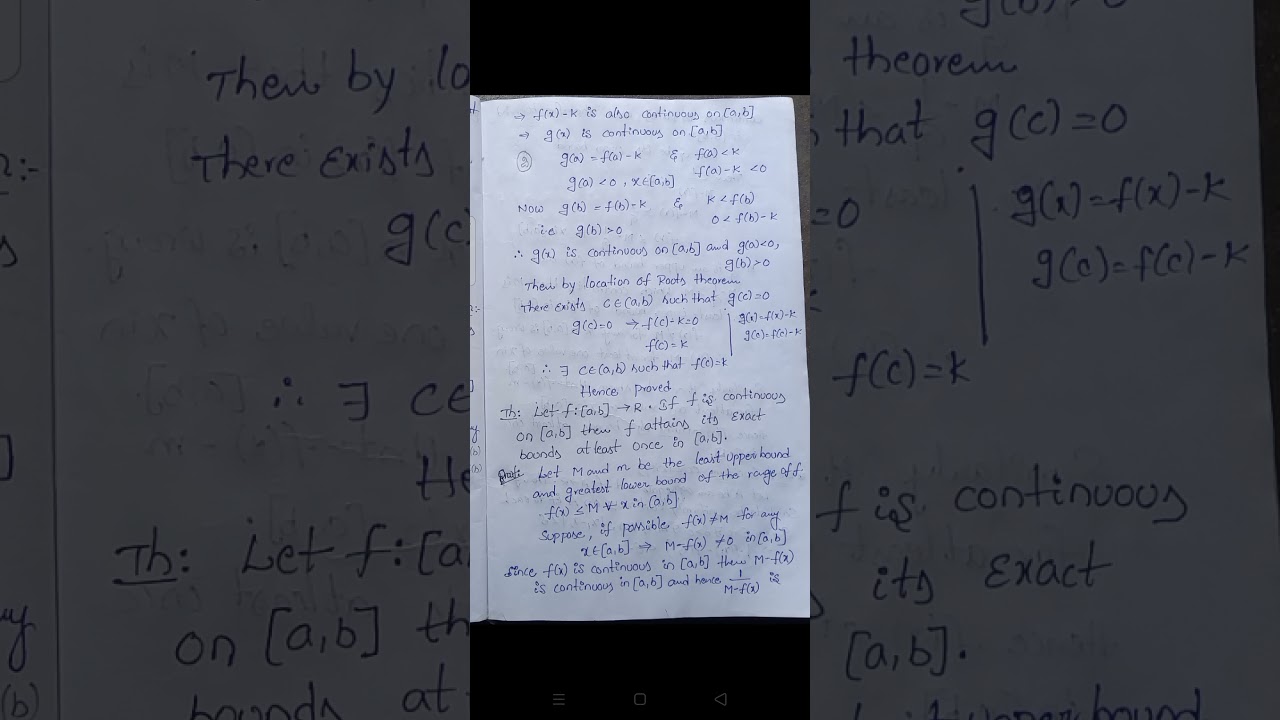 ⇒ f(x)-k is also continuous on [a,b]
⇒ g(x) is continuous on [a,b]
② g(a) = f(a)-k & f(a)<k
f(a)-k <0
g(a) <0, x∈[a,b]
Now g(b) = f(b)-k & k<f(b)
0 < f(b)-k
i.e. g(b)>0
∴ g(x) is continuous on [a,b] and g(a)<0,
g(b)>0
Then by location of Roots theorem
There exists C∈(a,b) such that g(c)=0
g(c)=0 ⇒ f(c)-k=0 | g(x)=f(x)-k
f(c)=k | g(c)=f(c)-k
∴ ∃ C∈(a,b) such that f(c)=k
Hence proved
Th: Let f:[a,b] → R. If f is continuous
on [a,b] then f attains its exact
bounds atleast once in [a,b].
Proof: Let M and m be the least upper bound
and greatest lower bound of the range of f.
f(x) ≤ M ∀ x in [a,b]
Suppose, if possible f(x)≠M for any
x∈[a,b] ⇒ M-f(x) ≠0 in [a,b]
Since f(x) is continuous in [a,b] then M-f(x)
is continuous in [a,b] and hence 1/M-f(x) is